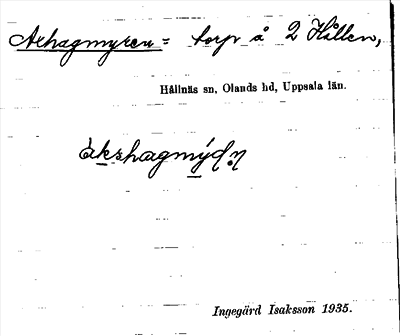 Axhagmyren = torp å 2 Hållen,
Hållnäs sn, Olands hd, Uppsala län.
Ingegärd Isaksson 1935.